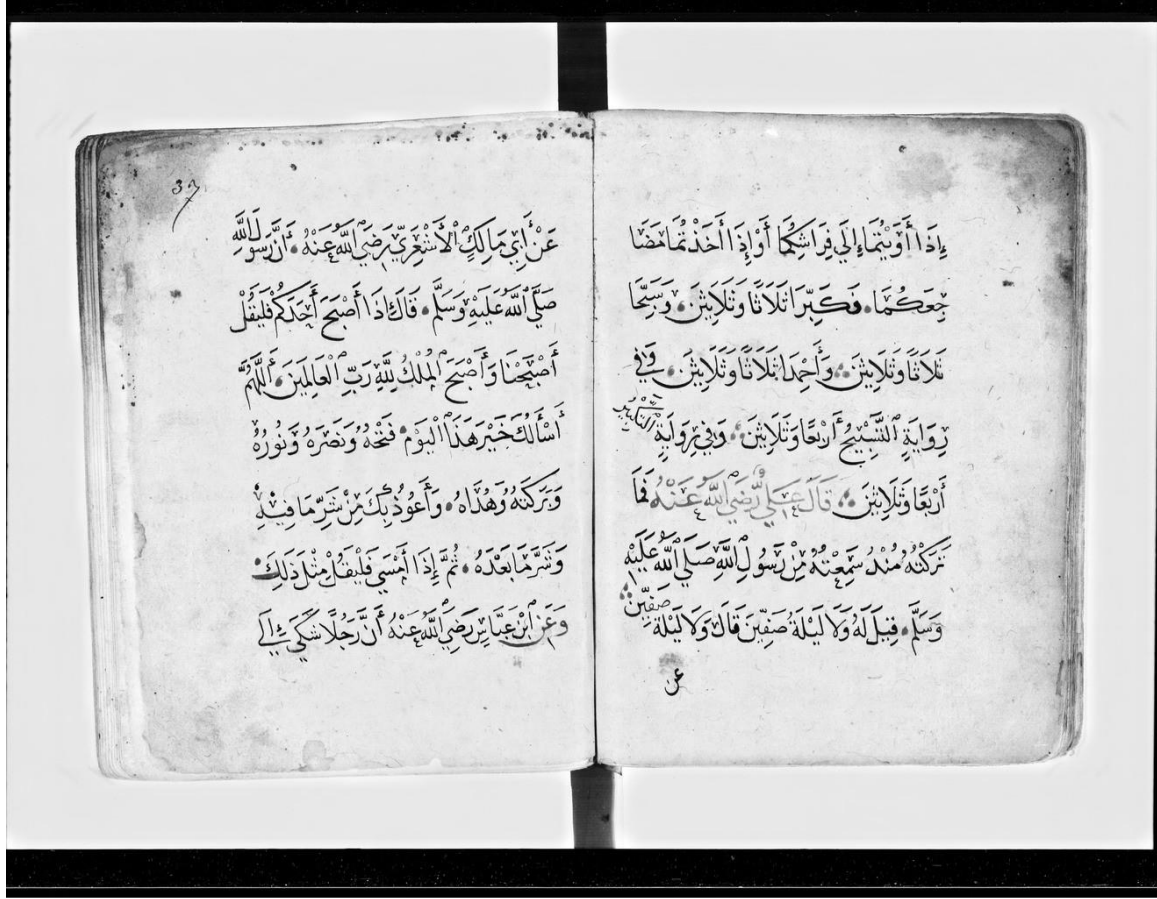 إِذَا أَوَيْتُمَا إِلَي فِرَاشِكُمَا أَوْ إِذَا أَخَذْتُمَا مَضَا
جِعَكُمَا فَكَبِّرَا ثَلَاثًا وَثَلَاثِيْنَ وَسَبِّحَا
ثَلَاثًا وَثَلَاثِيْنَ وَأَحْمِدَا ثَلَاثًا وَثَلَاثِيْنَ وَفِي
رِوَايَةِ ٱلتَّسْبِيْحُ أَرْبَعًا وَثَلَاثِيْنَ وَفِي رِوَايَةٍ التَّكْبِيْرُ
أَرْبَعًا وَثَلَاثِيْنَ قَالَ عَلِيٌّ رَضِيَ ٱللَّهُ عَنْهُ فَمَا
تَرَكْتُهُ مُنْذُ سَمِعْتُهُ مِنْ رَسُولِ ٱللَّهِ صَلَّي ٱللَّهُ عَلَيْهِ
وَسَلَّمَ قِيْلَ لَهُ وَلَا لَيْلَةُ صَفِّيْنَ قَالَ وَلَا لَيْلَةُ صَفِّيْنَ
عن
37
عَنْ أَبِي مَالِكٍ ٱلْأَشْعَرِيِّ رَضِيَ ٱللَّهُ عَنْهُ أَنَّ رَسُولَ ٱللَّهِ
صَلَّي ٱللَّهُ عَلَيْهِ وَسَلَّمَ قَالَ إِذَا أَصْبَحَ أَحَدُكُمْ فَلْيَقُلْ
أَصْبَحْنَا وَأَصْبَحَ ٱلْمُلْكُ لِلَّهِ رَبِّ ٱلْعَالَمِيْنَ أَللَّهُمَّ
أَسْأَلُكَ خَيْرَ هَذَا ٱلْيَوْمِ فَتْحَهُ وَنَصْرَهُ وَنُورُهُ
وَبَرَكَتَهُ وَهُدَاهُ وَأَعُوذُ بِكَ مِنْ شَرِّ مَا فِيْهِ
وَشَرِّ مَا بَعْدَهُ ثُمَّ إِذَا أَمْسَي فَلْيَقُلْ مِثْلَ ذَلِكَ
وَعَنِ ٱبْنِ عَبَّاسٍ رَضِيَ ٱللَّهُ عَنْهُ أَنَّ رَجُلًا شَكَي إِلَي